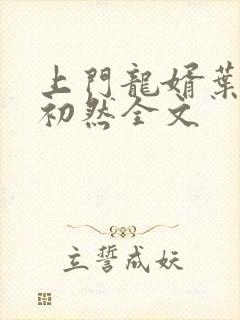 上門龍婿葉
初然全文
立誓成妖